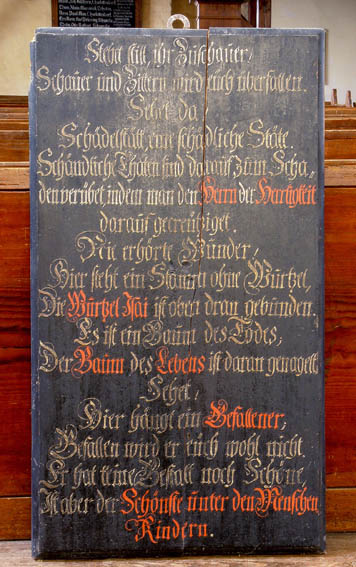 Stehet still, ihr Zuschauer,
Schauer und Zittern wird euch überfallen.
Sehet da,
Schädelstätt, eine schädliche Stätt.
Schändliche Thaten sind darauf zum Scha,
den verübet, indem man den Herrn der Herrligkeit
darauf gecreutziget.
Nie erhörte Wunder,
Hier steht ein Stamm ohne Wurtzel,
Die Wurtzel Isai ist oben dran gebunden.
Es ist ein Baum des Todes,
Der Baum des Lebens ist daran genagelt.
Sehet,
Hier hängt ein Gefallener,
Gefallen wird er euch wohl nicht.
Er hat keine Gestalt noch Schöne,
Ist aber der Schönste unter den Menschen
Kindern.